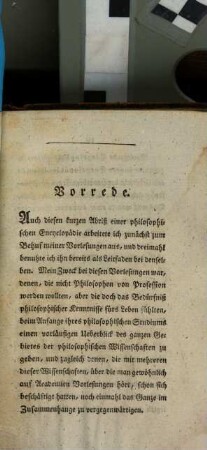 Vorrede.
Auch diesen kurzen Abriß einer philosophi-
schen Encyclopädie arbeitete ich zunächst zum
Behuf meiner Vorlesungen aus, und dreimahl
benutzte ich ihn bereits als Leitfaden bei densel-
ben. Mein Zweck bei diesen Vorlesungen war,
denen, die nicht Philosophen von Profession
werden wollten, aber die doch das Bedürfniß
philosophischer Kenntnisse fürs Leben fühlten,
beim Anfange ihres philosophischen Studiums
einen vorläufigen Ueberblick des ganzen Ge-
bietes der philosophischen Wissenschaften zu
geben, und zugleich denen, die mit mehreren
dieser Wissenschaften, über die man gewöhnlich
auf Academien Vorlesungen hört, schon sich
beschäftigt hatten, noch einmahl das Ganze im
Zusammenhange zu vergegenwärtigen.